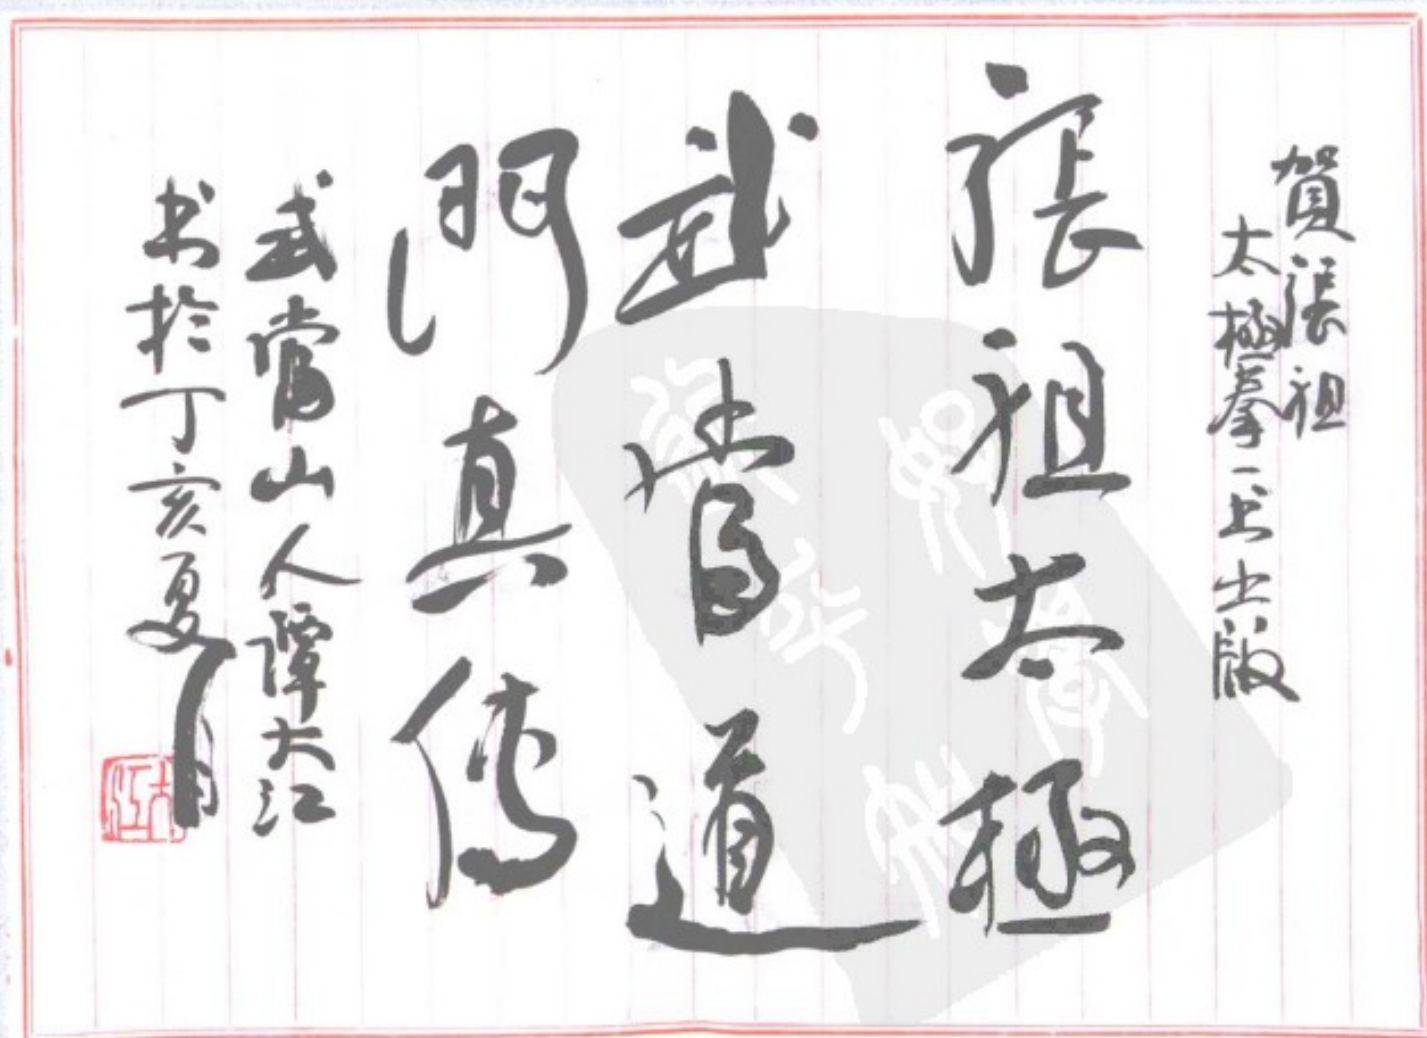 賀張祖
太極拳一书出版
張祖太極
武當道
門真传
武當山人譚大江
书於丁亥夏月